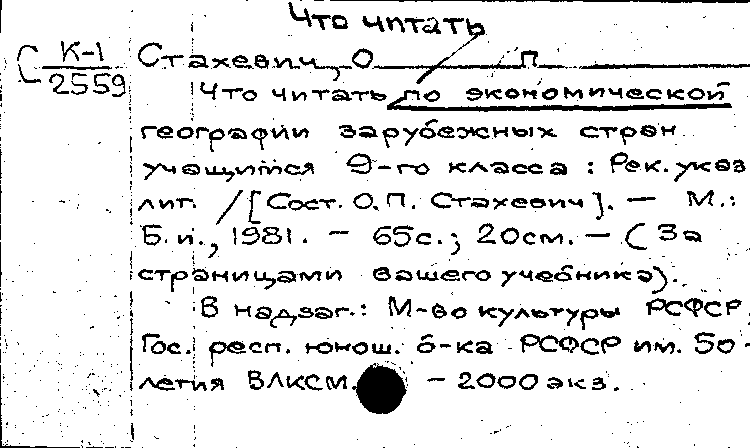 Что читать
С К-1 Стахевич, О П
2559 Что читать по экономической
географии зарубежных стран
учащимся 9-го класса : Рек. указ
лит. / [Сост. О.П. Стахевич]. — М.:
Б. и., 1981. — 65с.; 20см. — (За
страницами вашего учебника).
В надзаг.: М-во культуры РСФСР,
Гос. респ. юнош. б-ка РСФСР им. 50-
летия ВЛКСМ. — 2000 экз.